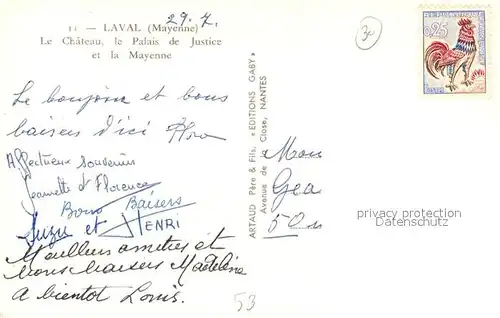 29.7.
11 — LAVAL (Mayenne)
Le Château, le Palais de Justice
et la Mayenne
30
0,25
Le bonjour et bons
baisers d'ici
Affectueux souvenirs
Jeannette et Florence
Bons Baisers
Suzy et HENRI
Meilleurs amitiés et
bons baisers Madeleine
A bientot Louis.
53
ARTAUD Père & Fils, « EDITIONS GABY »
Avenue de la Close, NANTES
Mon
Gea
50
privacy protection
Datenschutz